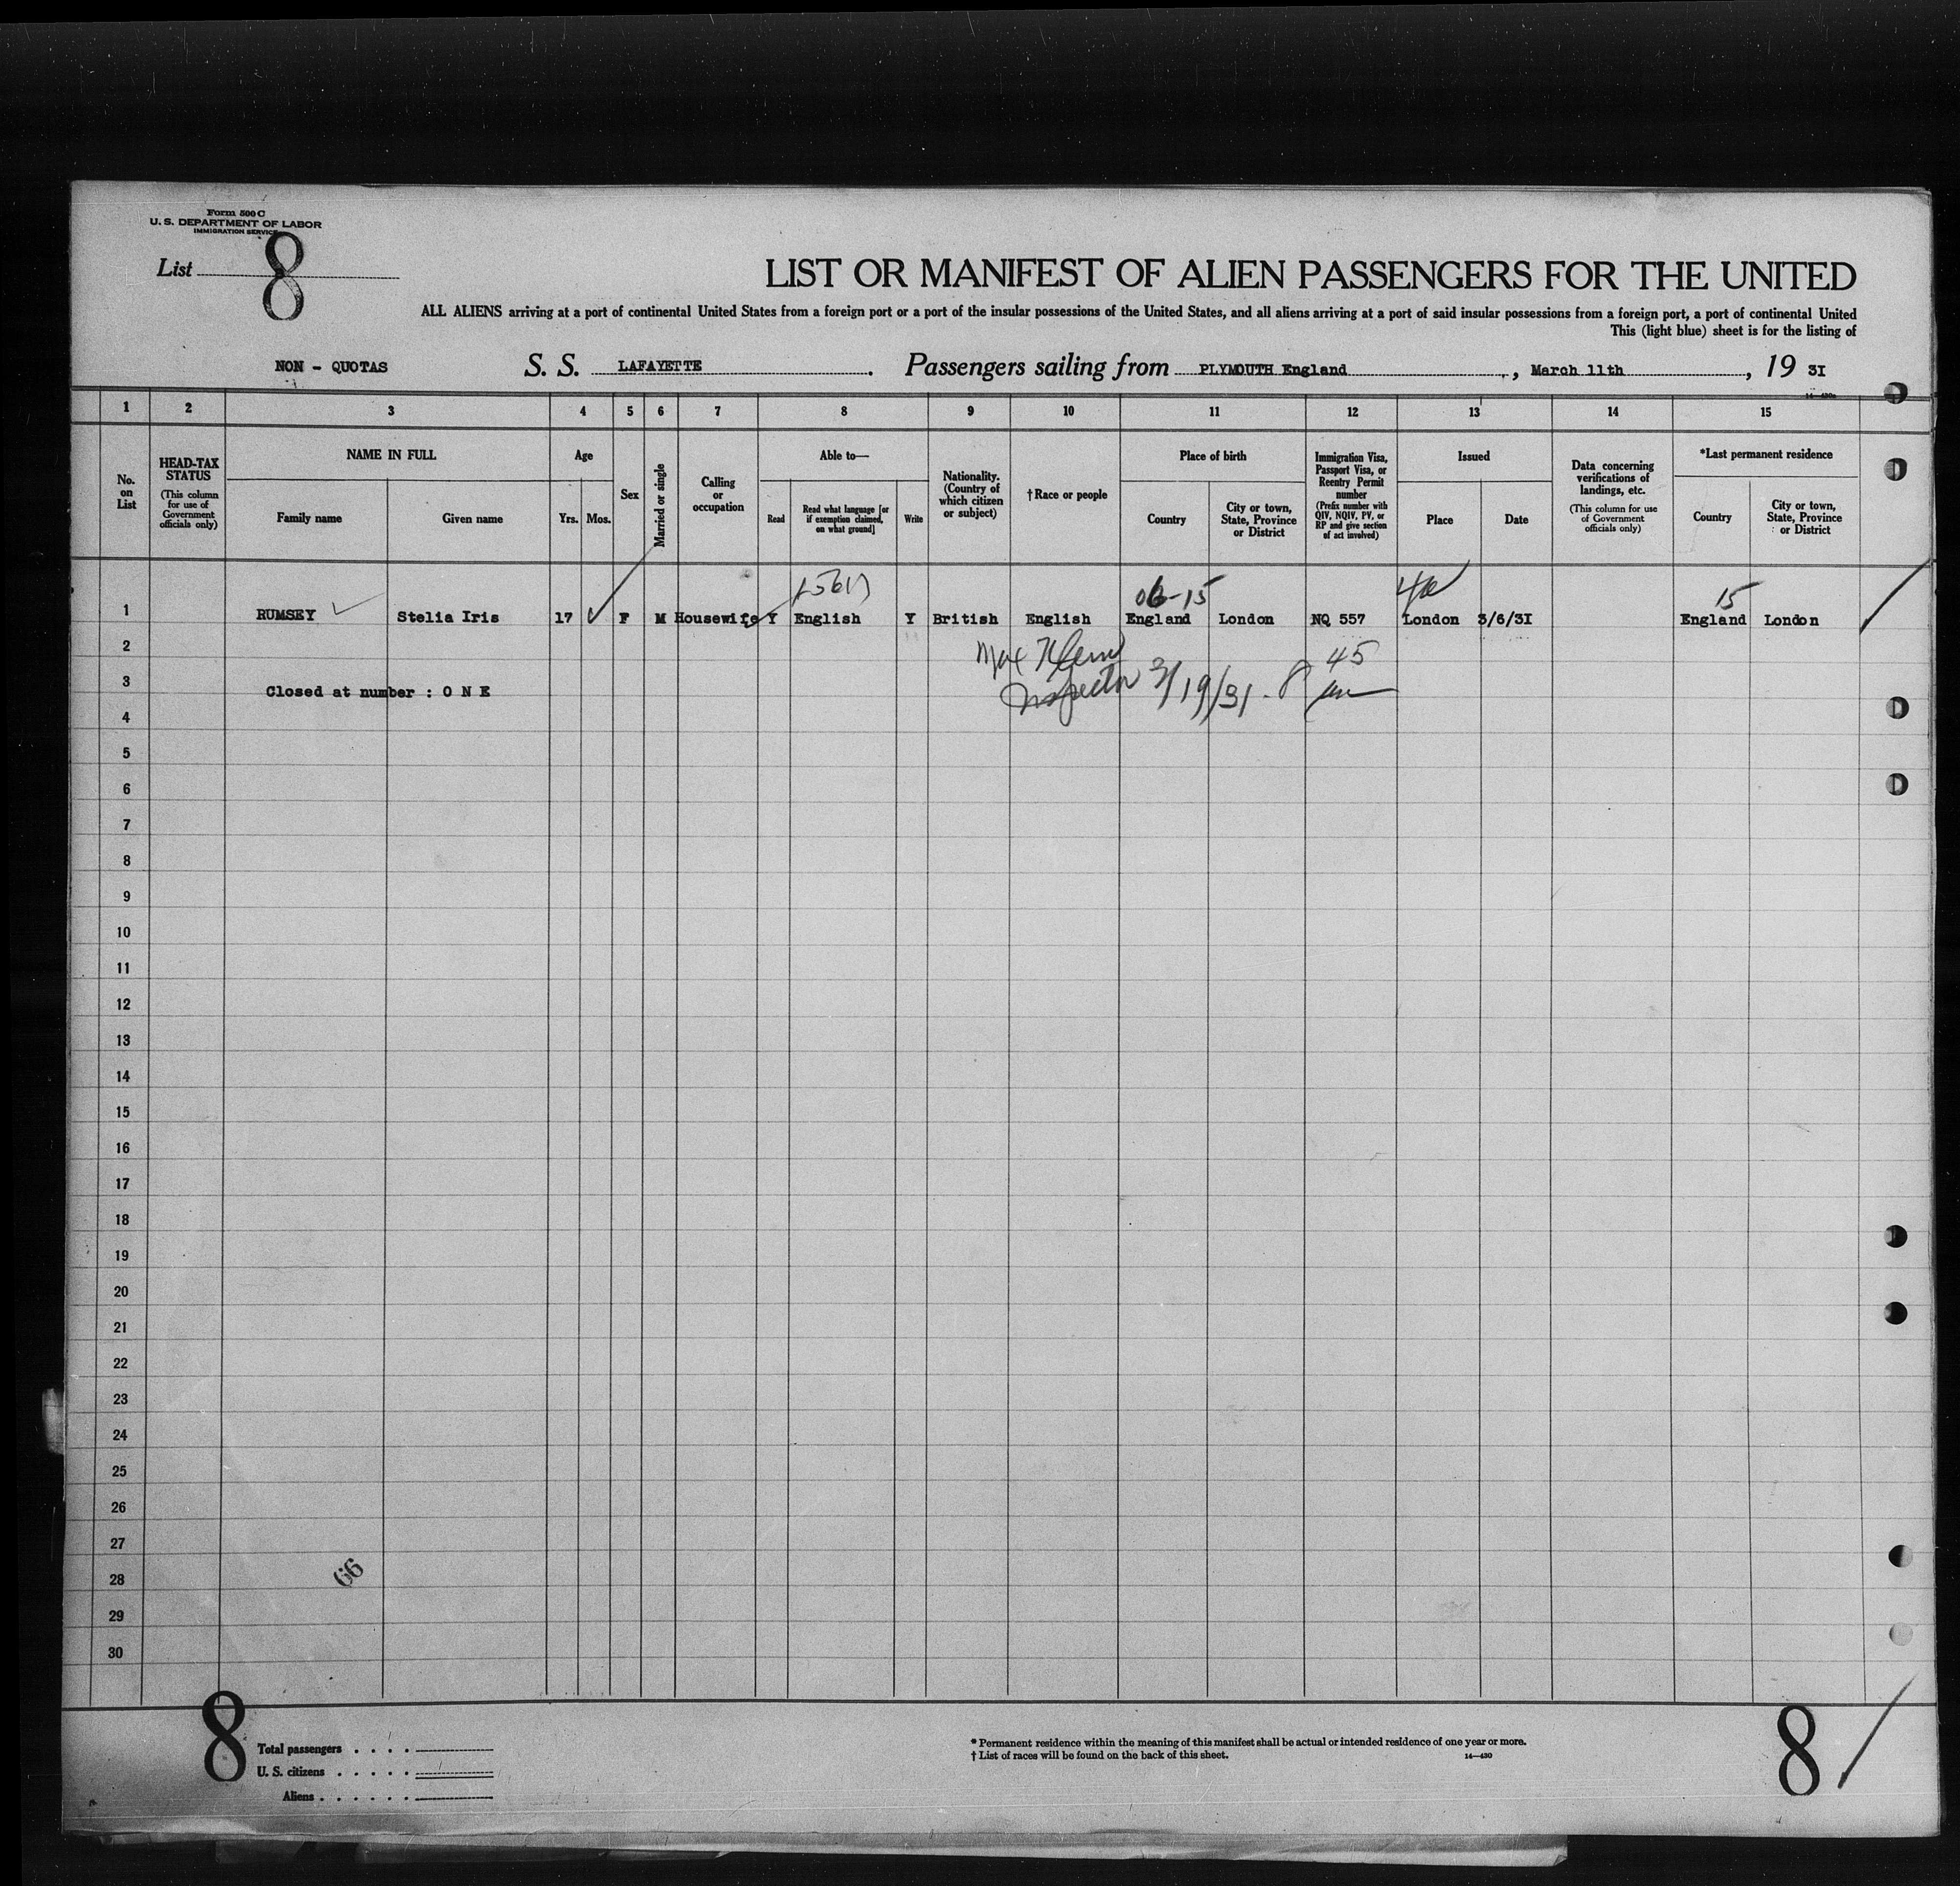 Form 500 C
U. S. DEPARTMENT OF LABOR
IMMIGRATION SERVICE
List 8
LIST OR MANIFEST OF ALIEN PASSENGERS FOR THE UNITED
ALL ALIENS arriving at a port of continental United States from a foreign port or a port of the insular possessions of the United States, and all aliens arriving at a port of said insular possessions from a foreign port, a port of continental United
This (light blue) sheet is for the listing of
NON - QUOTAS S. S. LAFAYETTE . Passengers sailing from PLYMOUTH England , March 11th , 19 31
14—430a
1 2 3 4 5 6 7 8 9 10 11 12 13 14 15
No. on List
HEAD-TAX STATUS
(This column for use of Government officials only)
NAME IN FULL
Family name
Given name
Age
Yrs. Mos.
Sex
Married or single
Calling or occupation
Able to—
Read
Read what language [or if exemption claimed, on what ground]
Write
Nationality. (Country of which citizen or subject)
†Race or people
Place of birth
Country
City or town, State, Province or District
Immigration Visa, Passport Visa, or Reentry Permit number
(Prefix number with QIV, NQIV, PV, or RP and give section of act involved)
Issued
Place
Date
Data concerning verifications of landings, etc.
(This column for use of Government officials only)
*Last permanent residence
Country
City or town, State, Province or District
06-15 15
1 RUMSEY Stelia Iris 17 F M Housewife Y English Y British English England London NQ 557 London 3/6/31 England London
2 Max 45
3 Closed at number : O N E Inspector 3/19/31
4
5
6
7
8
9
10
11
12
13
14
15
16
17
18
19
20
21
22
23
24
25
26
27
28 66
29
30
8 8
Total passengers . . . .
U. S. citizens . . . . .
Aliens . . . . . .
* Permanent residence within the meaning of this manifest shall be actual or intended residence of one year or more.
† List of races will be found on the back of this sheet. 14—430